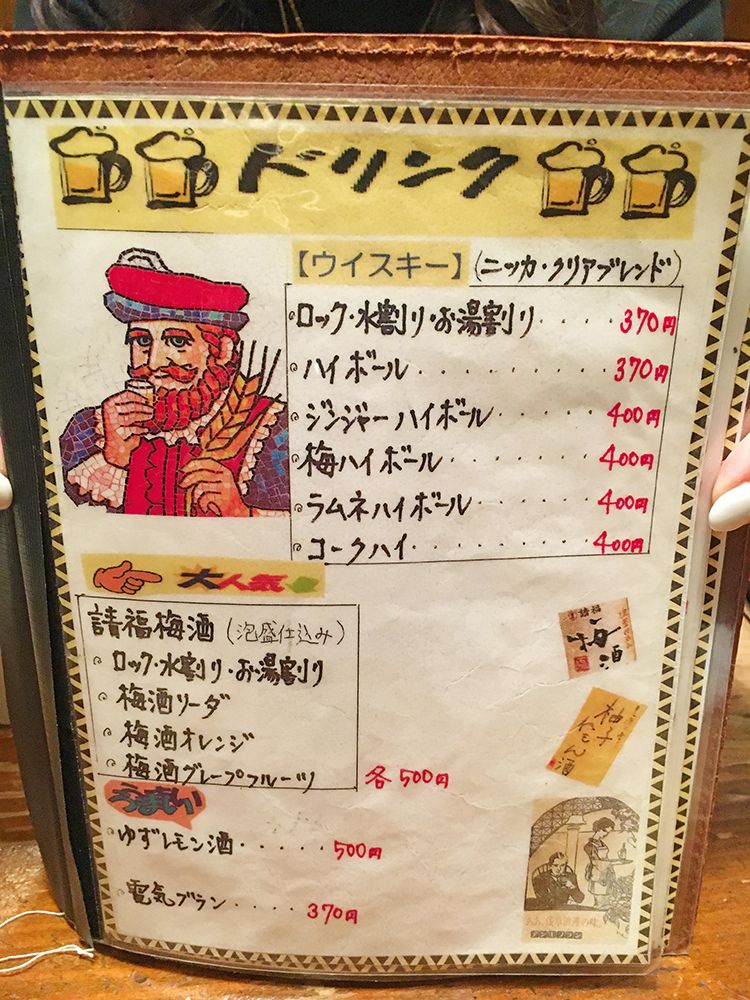 ドリンク
【ウイスキー】(ニッカ・クリアブレンド)
ロック・水割り・お湯割り・・・・370円
ハイボール・・・・・・・・・・370円
ジンジャーハイボール・・・・・・400円
梅ハイボール・・・・・・・・400円
ラムネハイボール・・・・・・・400円
コークハイ・・・・・・・・・400円
大人気
請福梅酒(泡盛仕込み)
ロック・水割り・お湯割り
梅酒ソーダ
梅酒オレンジ
梅酒グレープフルーツ 各500円
うまい
ゆずレモン酒・・・・・500円
電気ブラン・・・・370円
請福
梅酒
柚子
れもん酒
デンキブラン